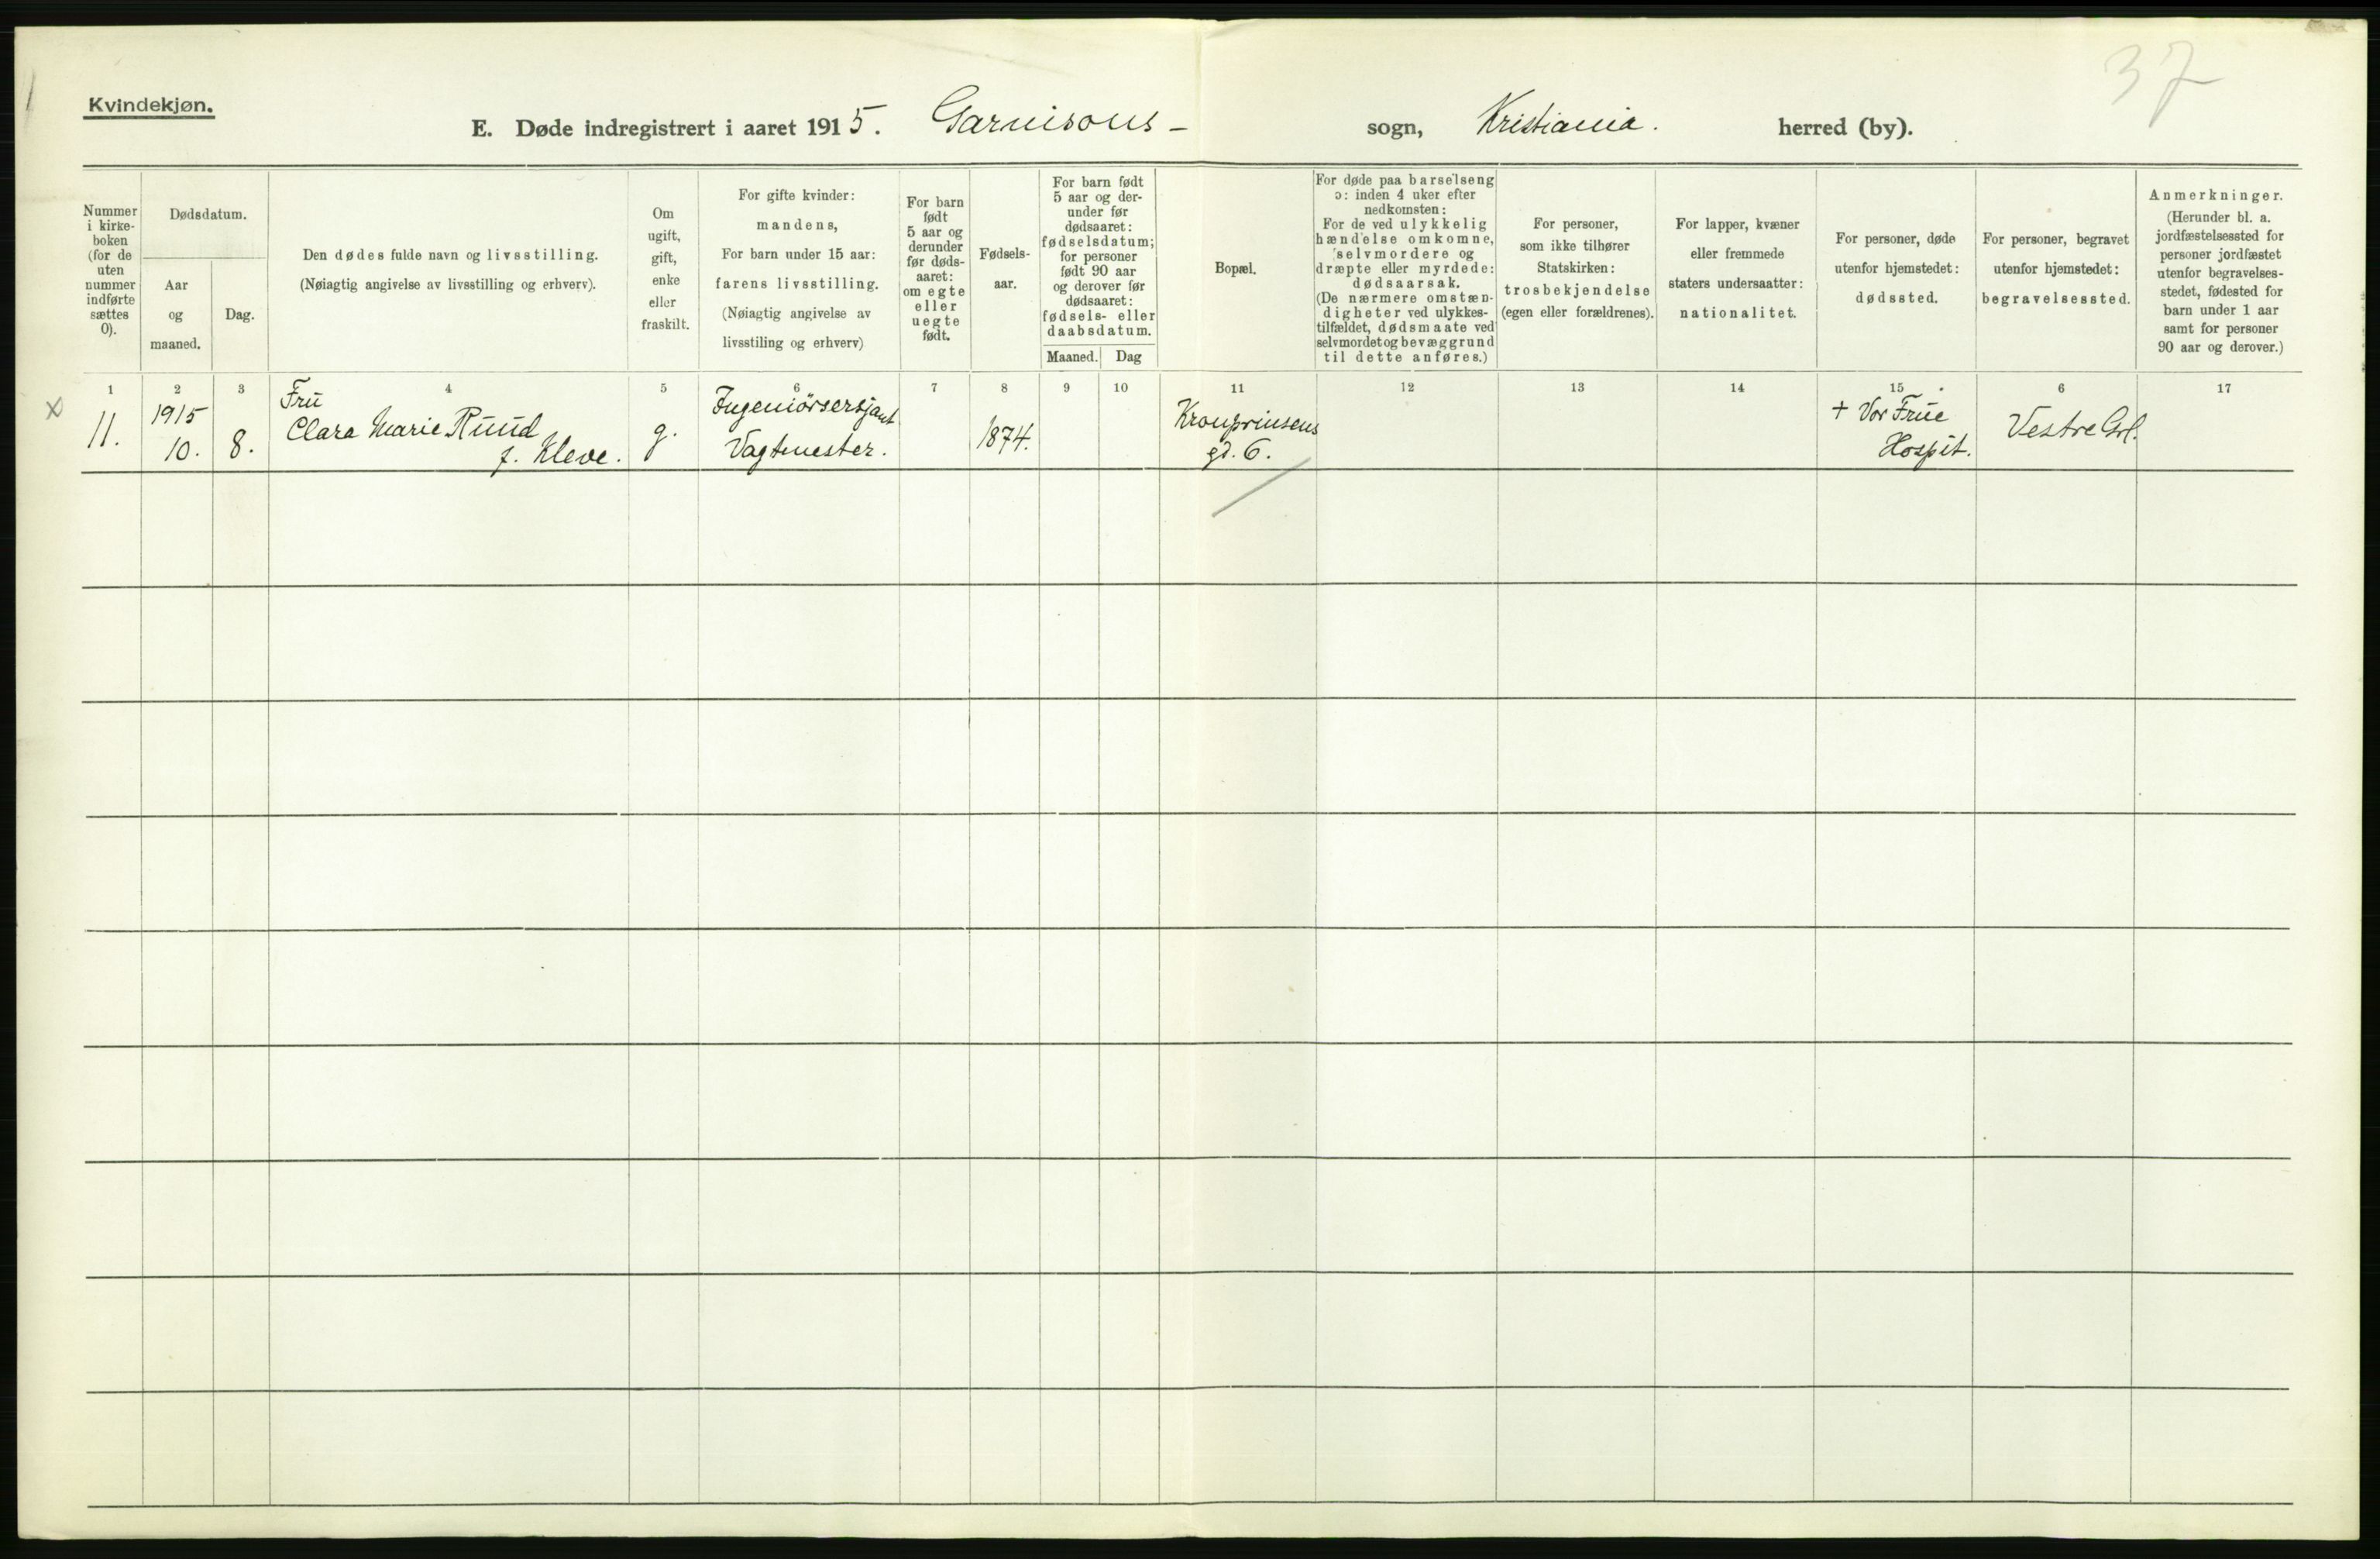 37
Kvindekjøn.
E. Døde indregistrert i aaret 1915. Garnisons- sogn, Kristiania. herred (by).
Nummer
i kirke-
boken
(for de
uten
nummer
indførte
sættes
0).
Dødsdatum.
Aar
og
maaned.
Dag.
Den dødes fulde navn og livsstilling.
(Nøiagtig angivelse av livsstilling og erhverv).
Om
ugift,
gift,
enke
eller
fraskilt.
For gifte kvinder:
mandens,
For barn under 15 aar:
farens livsstilling.
(Nøiagtig angivelse av
livsstiling og erhverv)
For barn
født
5 aar og
derunder
før døds-
aaret:
om egte
eller
uegte
født.
Fødsels-
aar.
For barn født
5 aar og der-
under før
dødsaaret:
fødselsdatum;
for personer
født 90 aar
og derover før
dødsaaret:
fødsels- eller
daabsdatum.
Maaned. Dag
Bopæl.
For døde paa barselseng
ɔ: inden 4 uker efter
nedkomsten:
For de ved ulykkelig
hændelse omkomne,
selvmordere og
dræpte eller myrdede:
dødsaarsak.
(De nærmere omstæn-
digheter ved ulykkes-
tilfældet, dødsmaate ved
selvmordet og bevæggrund
til dette anføres.)
For personer,
som ikke tilhører
Statskirken:
trosbekjendelse
(egen eller forældrenes).
For lapper, kvæner
eller fremmede
staters undersaatter:
nationalitet.
For personer, døde
utenfor hjemstedet:
dødssted.
For personer, begravet
utenfor hjemstedet:
begravelsessted.
Anmerkninger.
(Herunder bl. a.
jordfæstelsessted for
personer jordfæstet
utenfor begravelses-
stedet, fødested for
barn under 1 aar
samt for personer
90 aar og derover.)
1 2 3 4 5 6 7 8 9 10 11 12 13 14 15 6 17
x
11.
1915
10.
8.
Fru
Clara Marie Ruud
f. Kleve.
g.
Ingeniørsersjant
Vagtmester.
1874.
Kronprinsens
gd. 6.
+ Vor Frue
Hospit.
Vestre Grl.